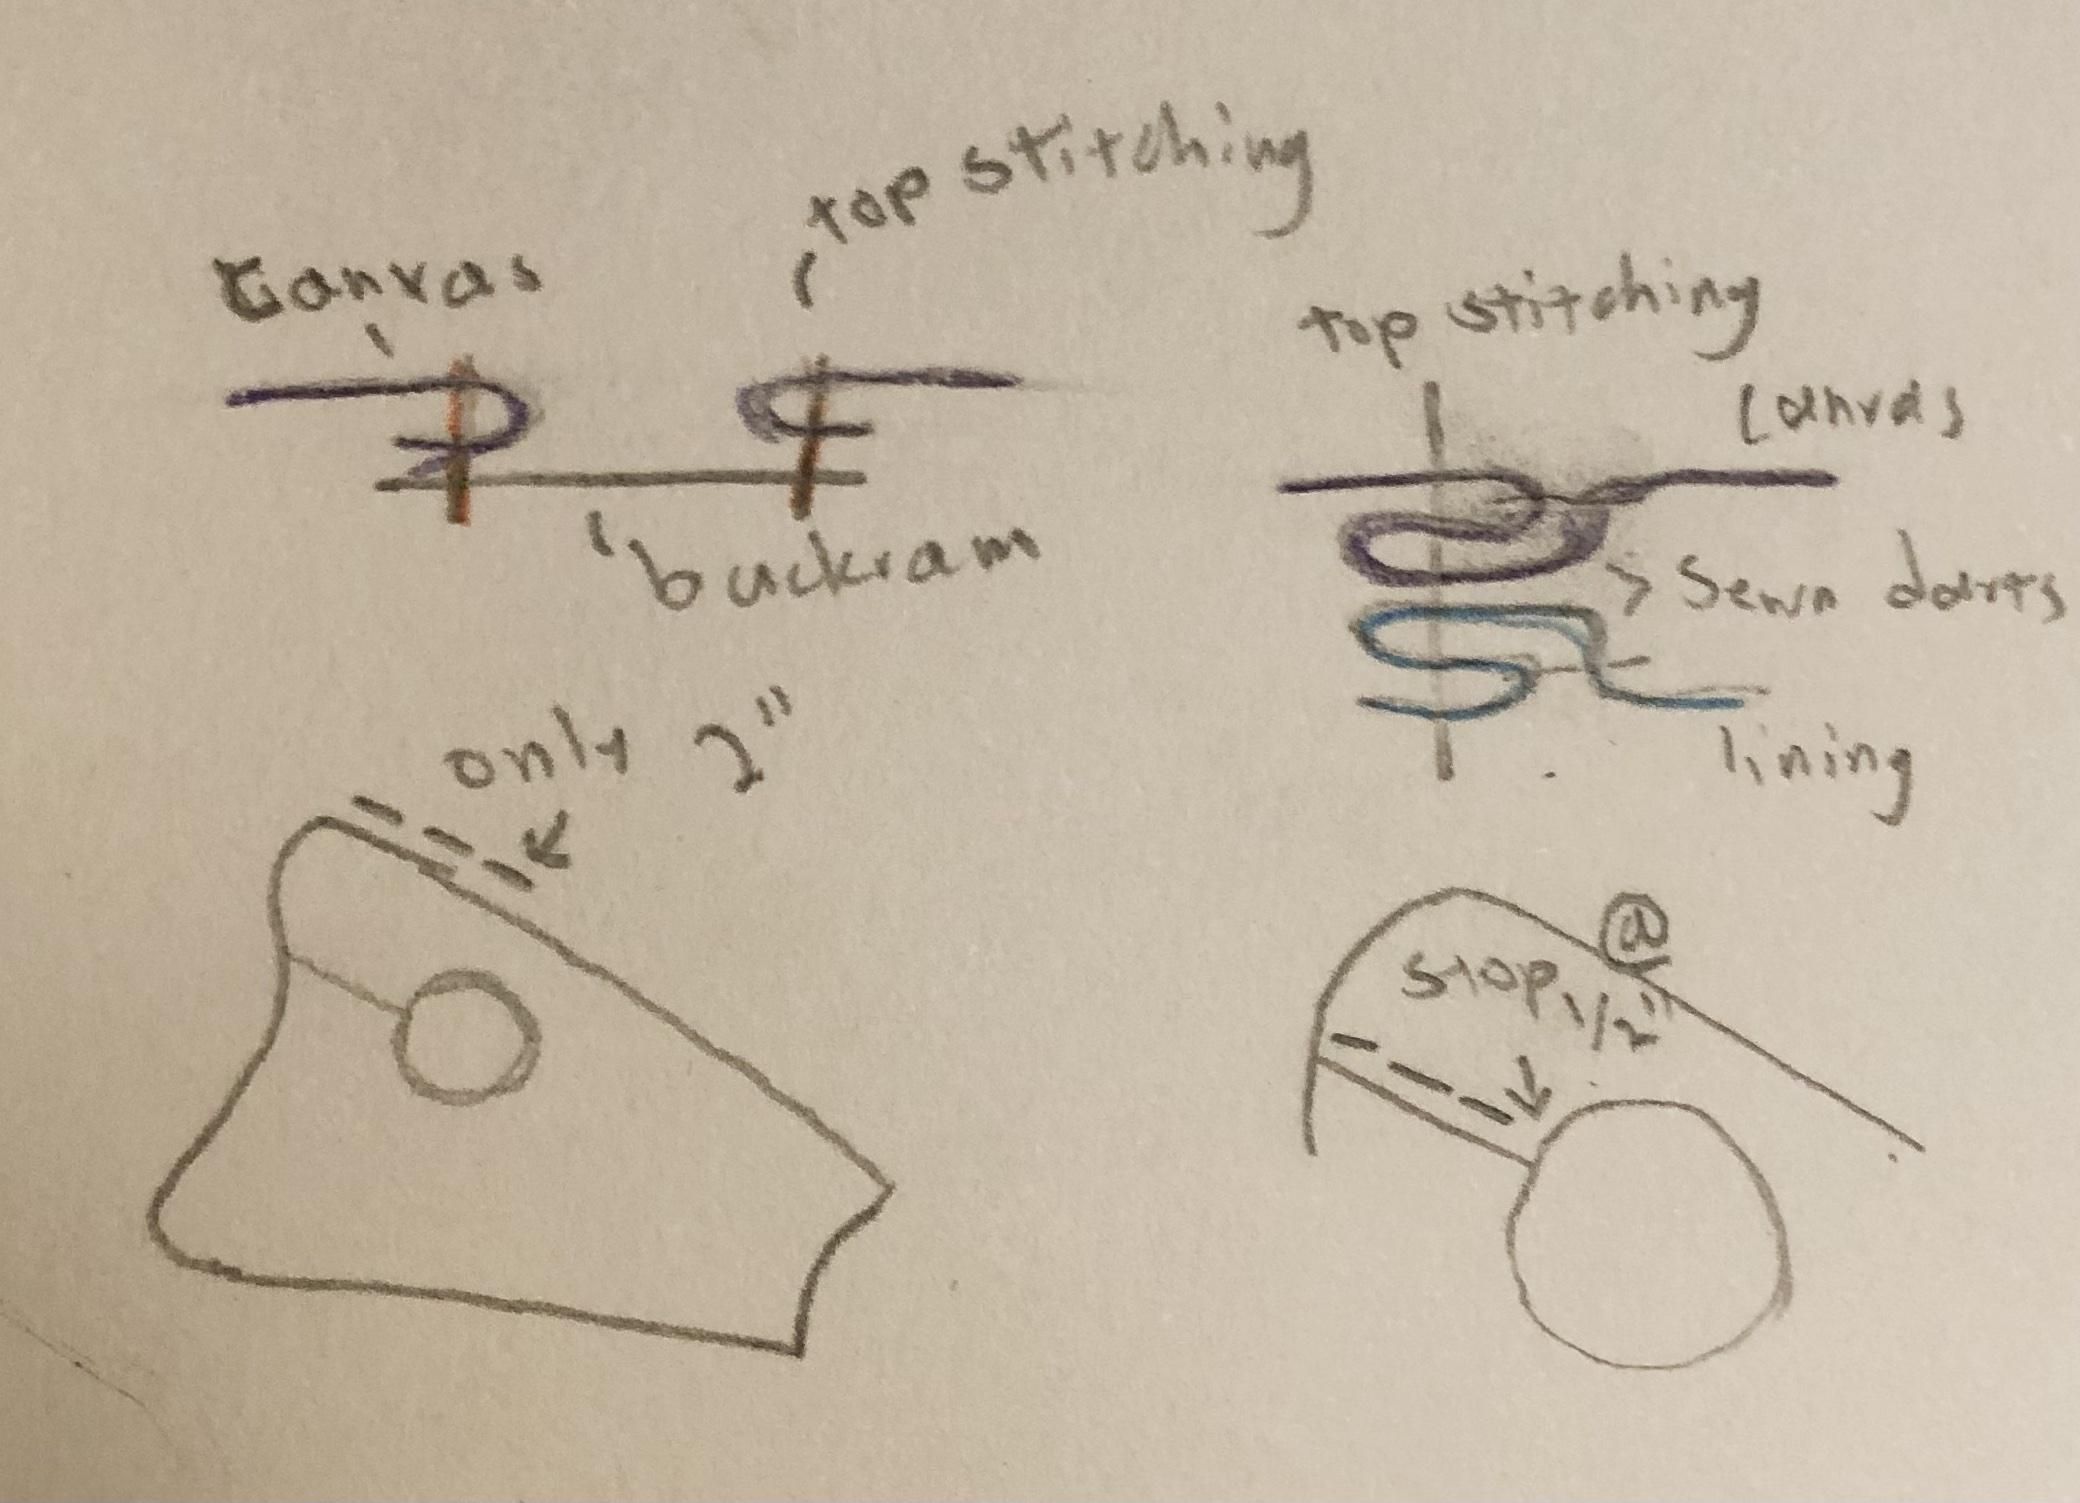 top stitching
canvas
buckram
top stitching
canvas
> sewn darts
lining
only 2"
@
stop 1/2"